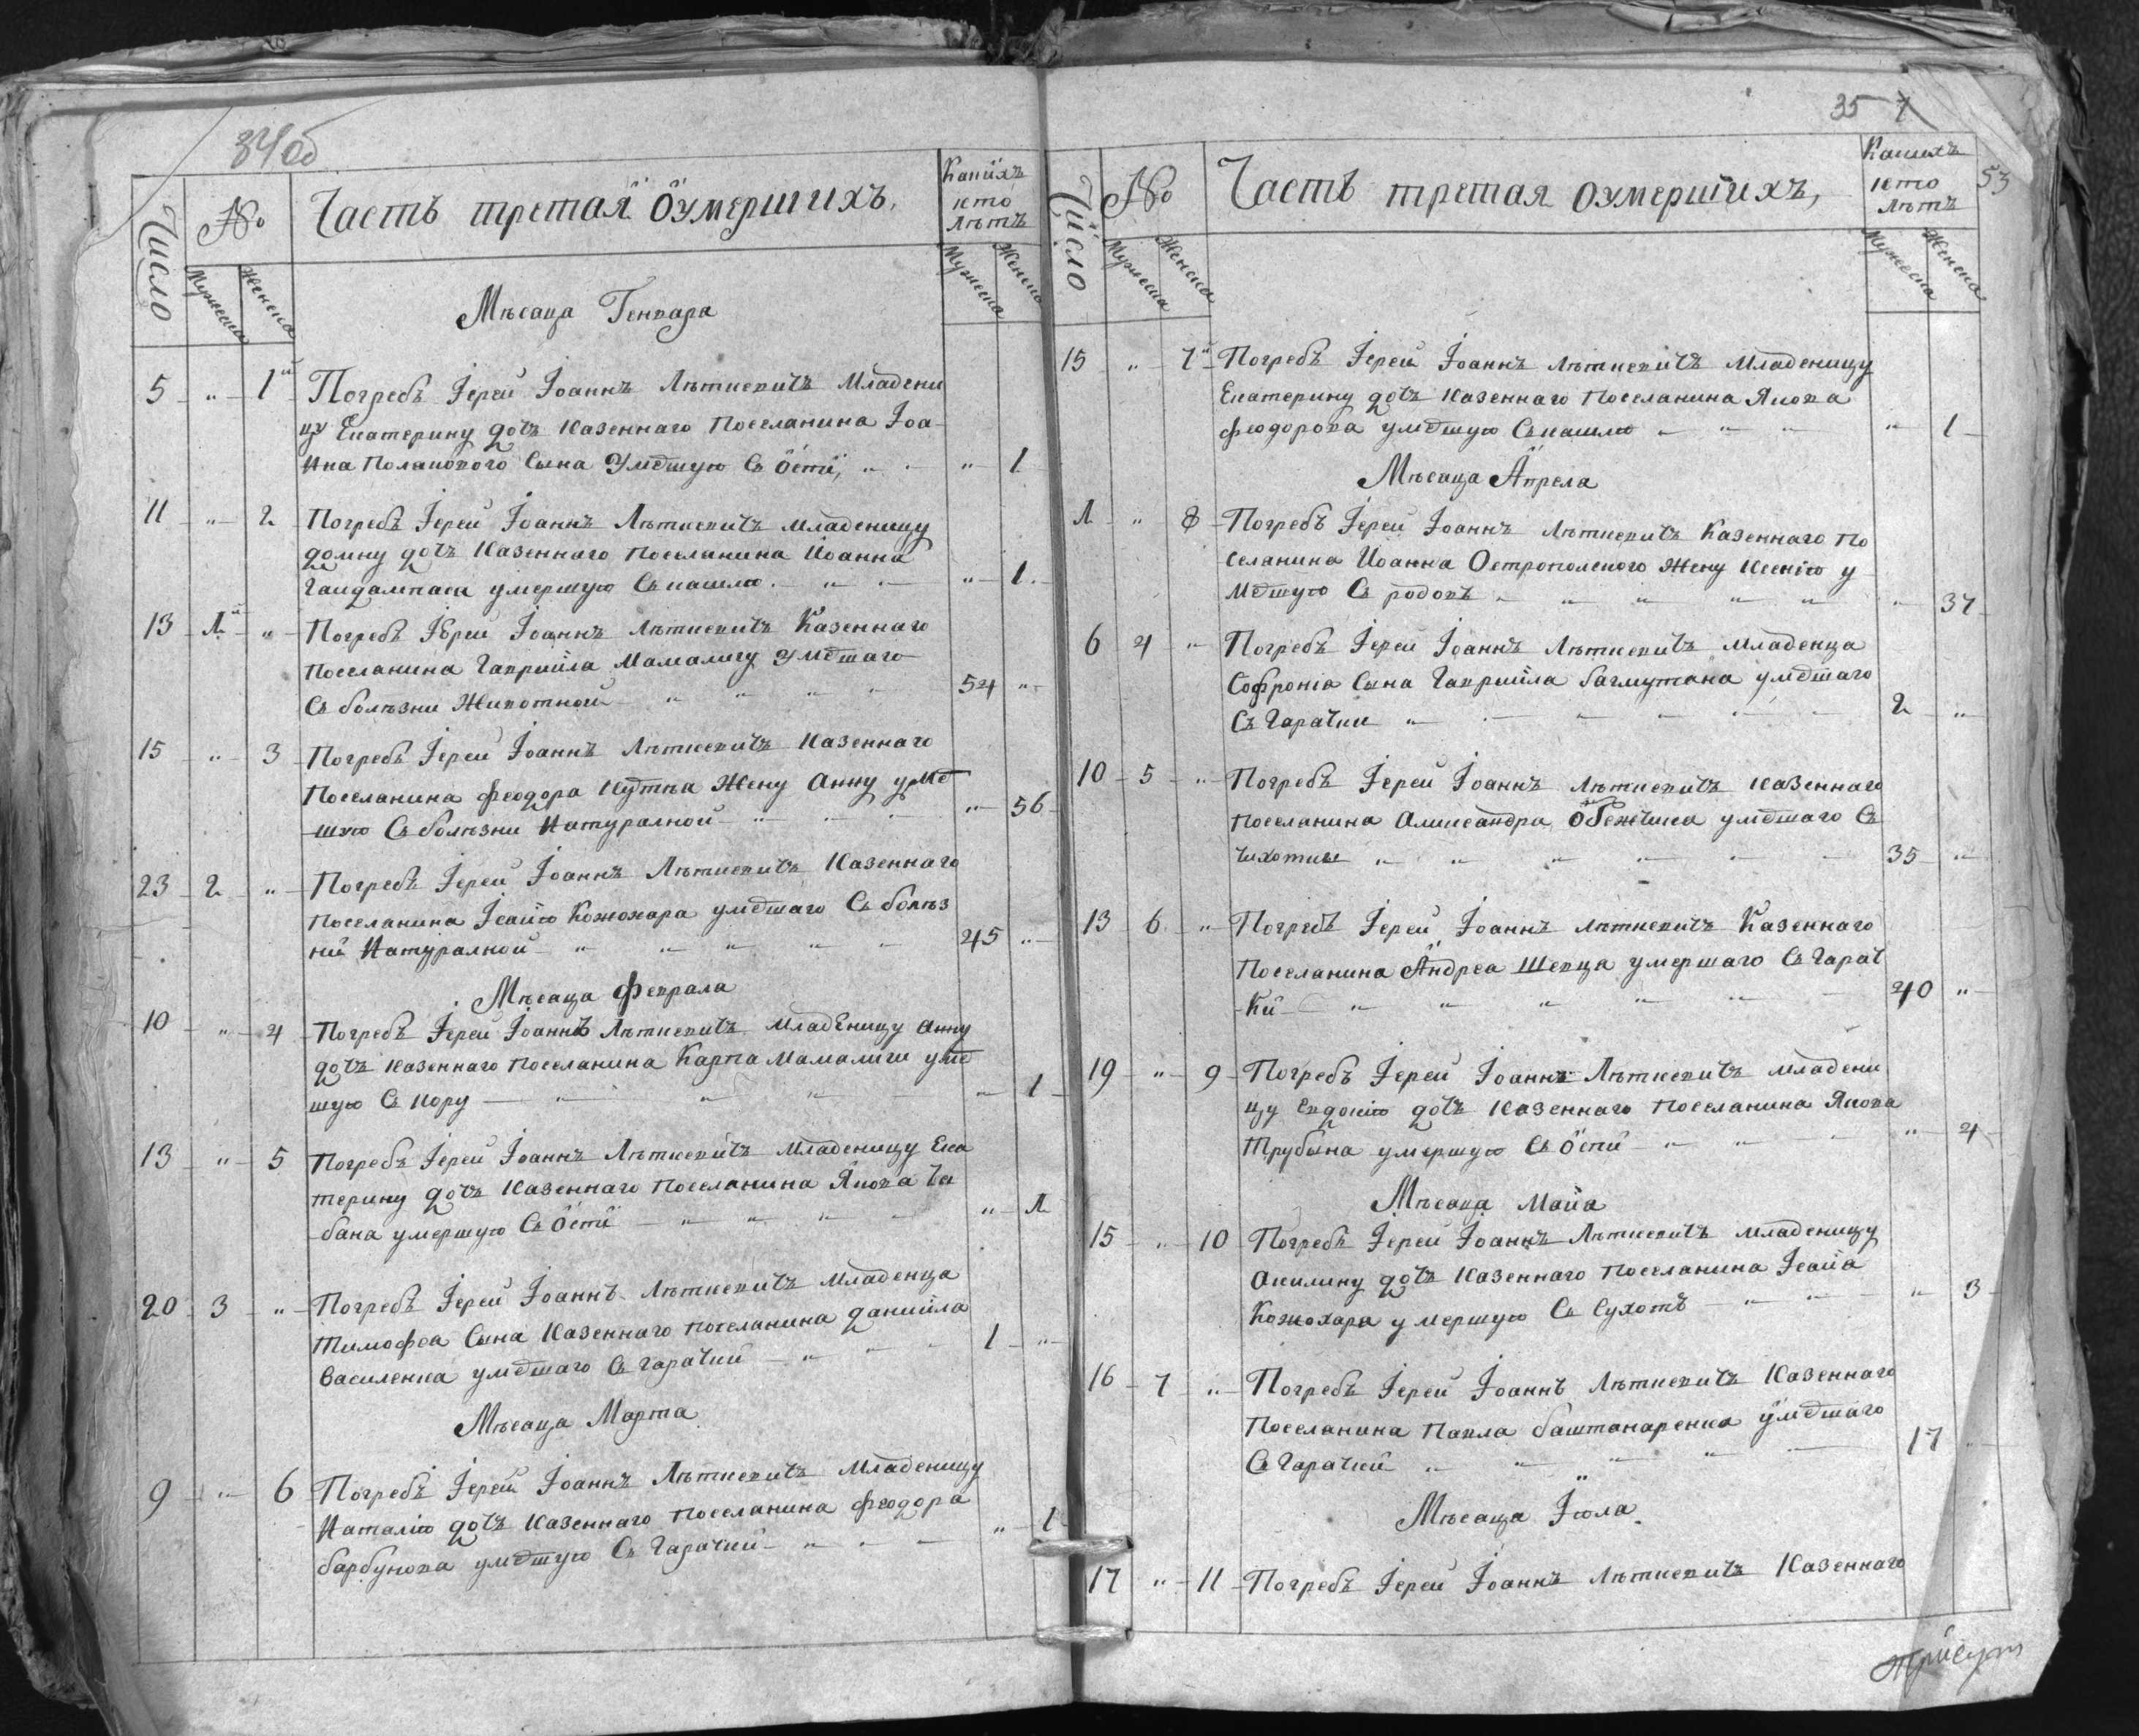 34об
Число
№
Часть третая оумершихъ.
Какихъ
кто
лѣтъ
Мужеска
Женска
Мужеска
Женска
Мѣсаца Генвара
5 " 1й Погребъ Іерей Іоаннъ Лѣткевичъ Младени
цу Екатерину дочь Казеннаго Поселанина Іоа
нна Поланового Сына Умершую Съ Ости, " 1
11 " 2 Погребъ Іерей Іоаннъ Лѣткевичъ Младеницу
домну дочь Казеннаго Поселанина Иоанна
умершую Съ кашлю " 1
13 1й " Погребъ Іерей Іоаннъ Лѣткевичъ Казеннаго
Поселанина Гавриила Мамалигу Умершаго
Съ болѣзни Животной 54 "
15 " 3 Погребъ Іерей Іоаннъ Лѣткевичъ Казеннаго
Поселанина Феодора Жену Анну умер
шую Съ болѣзни Натуралной " 56
23 2 " Погребъ Іерей Іоаннъ Лѣткевичъ Казеннаго
Поселанина Ісаію Кожокара умершаго Съ болѣз
ни Натуралной 45 "
Мѣсаца Феврала
10 " 4 Погребъ Іерей Іоаннъ Лѣткевичъ Младеницу Анну
дочь Казеннаго Поселанина Карпа Мамалиги умер
шую Съ Кору " 1
13 " 5 Погребъ Іерей Іоаннъ Лѣткевичъ Младеницу Ека
терину дочь Казеннаго Поселанина Якова Ча
бана умершую Съ Ости " 1
20 3 " Погребъ Іерей Іоаннъ Лѣткевичъ Младенца
Тимофеа Сына Казеннаго Поселанина даниила
Василенка умершаго Съ Гарачки 1 "
Мѣсаца Марта
9 " 6 Погребъ Іерей Іоаннъ Лѣткевичъ Младеницу
Наталію дочь Казеннаго Поселанина Феодора
барбунова умершую Съ Гарачки " 1
35 7
53
Число
№
Часть третая оумершихъ,
Какихъ
кто
лѣтъ
Мужеска
Женска
Мужеска
Женска
15 " 7й Погребъ Іерей Іоаннъ Лѣткевичъ Младеницу
Екатерину дочь Казеннаго Поселанина Якова
Феодорова умершую Съ кашлю " 1
Мѣсаца Апрела
1 " 8 Погребъ Іерей Іоаннъ Лѣткевичъ Казеннаго По
селанина Иоанна Острополского Жену Ксенію у
мершую Съ родовъ " 37
6 4 " Погребъ Іерей Іоаннъ Лѣткевичъ Младенца
Софроніа Сына Гавриила багмутана умершаго
Съ Гарачки 2 "
10 5 " Погребъ Іерей Іоаннъ Лѣткевичъ Казеннаго
Поселанина Аликсандра умершаго Съ
чихотки 35 "
13 6 " Погребъ Іерей Іоаннъ Лѣткевичъ Казеннаго
Поселанина Андреа Шевца умершаго Съ Гарач
ки 40 "
19 " 9 Погребъ Іерей Іоаннъ Лѣткевичъ Младени
цу Евдокію дочь Казеннаго Поселанина Якова
Трубына умершую Съ Ости " 4
Мѣсаца Маиа
15 " 10 Погребъ Іерей Іоаннъ Лѣткевичъ Младеницу
Акилину дочь Казеннаго Поселанина Ісаиа
Кожохара умершую Съ Сухотъ " 3
16 7 " Погребъ Іерей Іоаннъ Лѣткевичъ Казеннаго
Поселанина Павла баштанаренка умершаго
Съ Гарачки 17 "
Мѣсаца Іюла
17 " 11 Погребъ Іерей Іоаннъ Лѣткевичъ Казеннаго